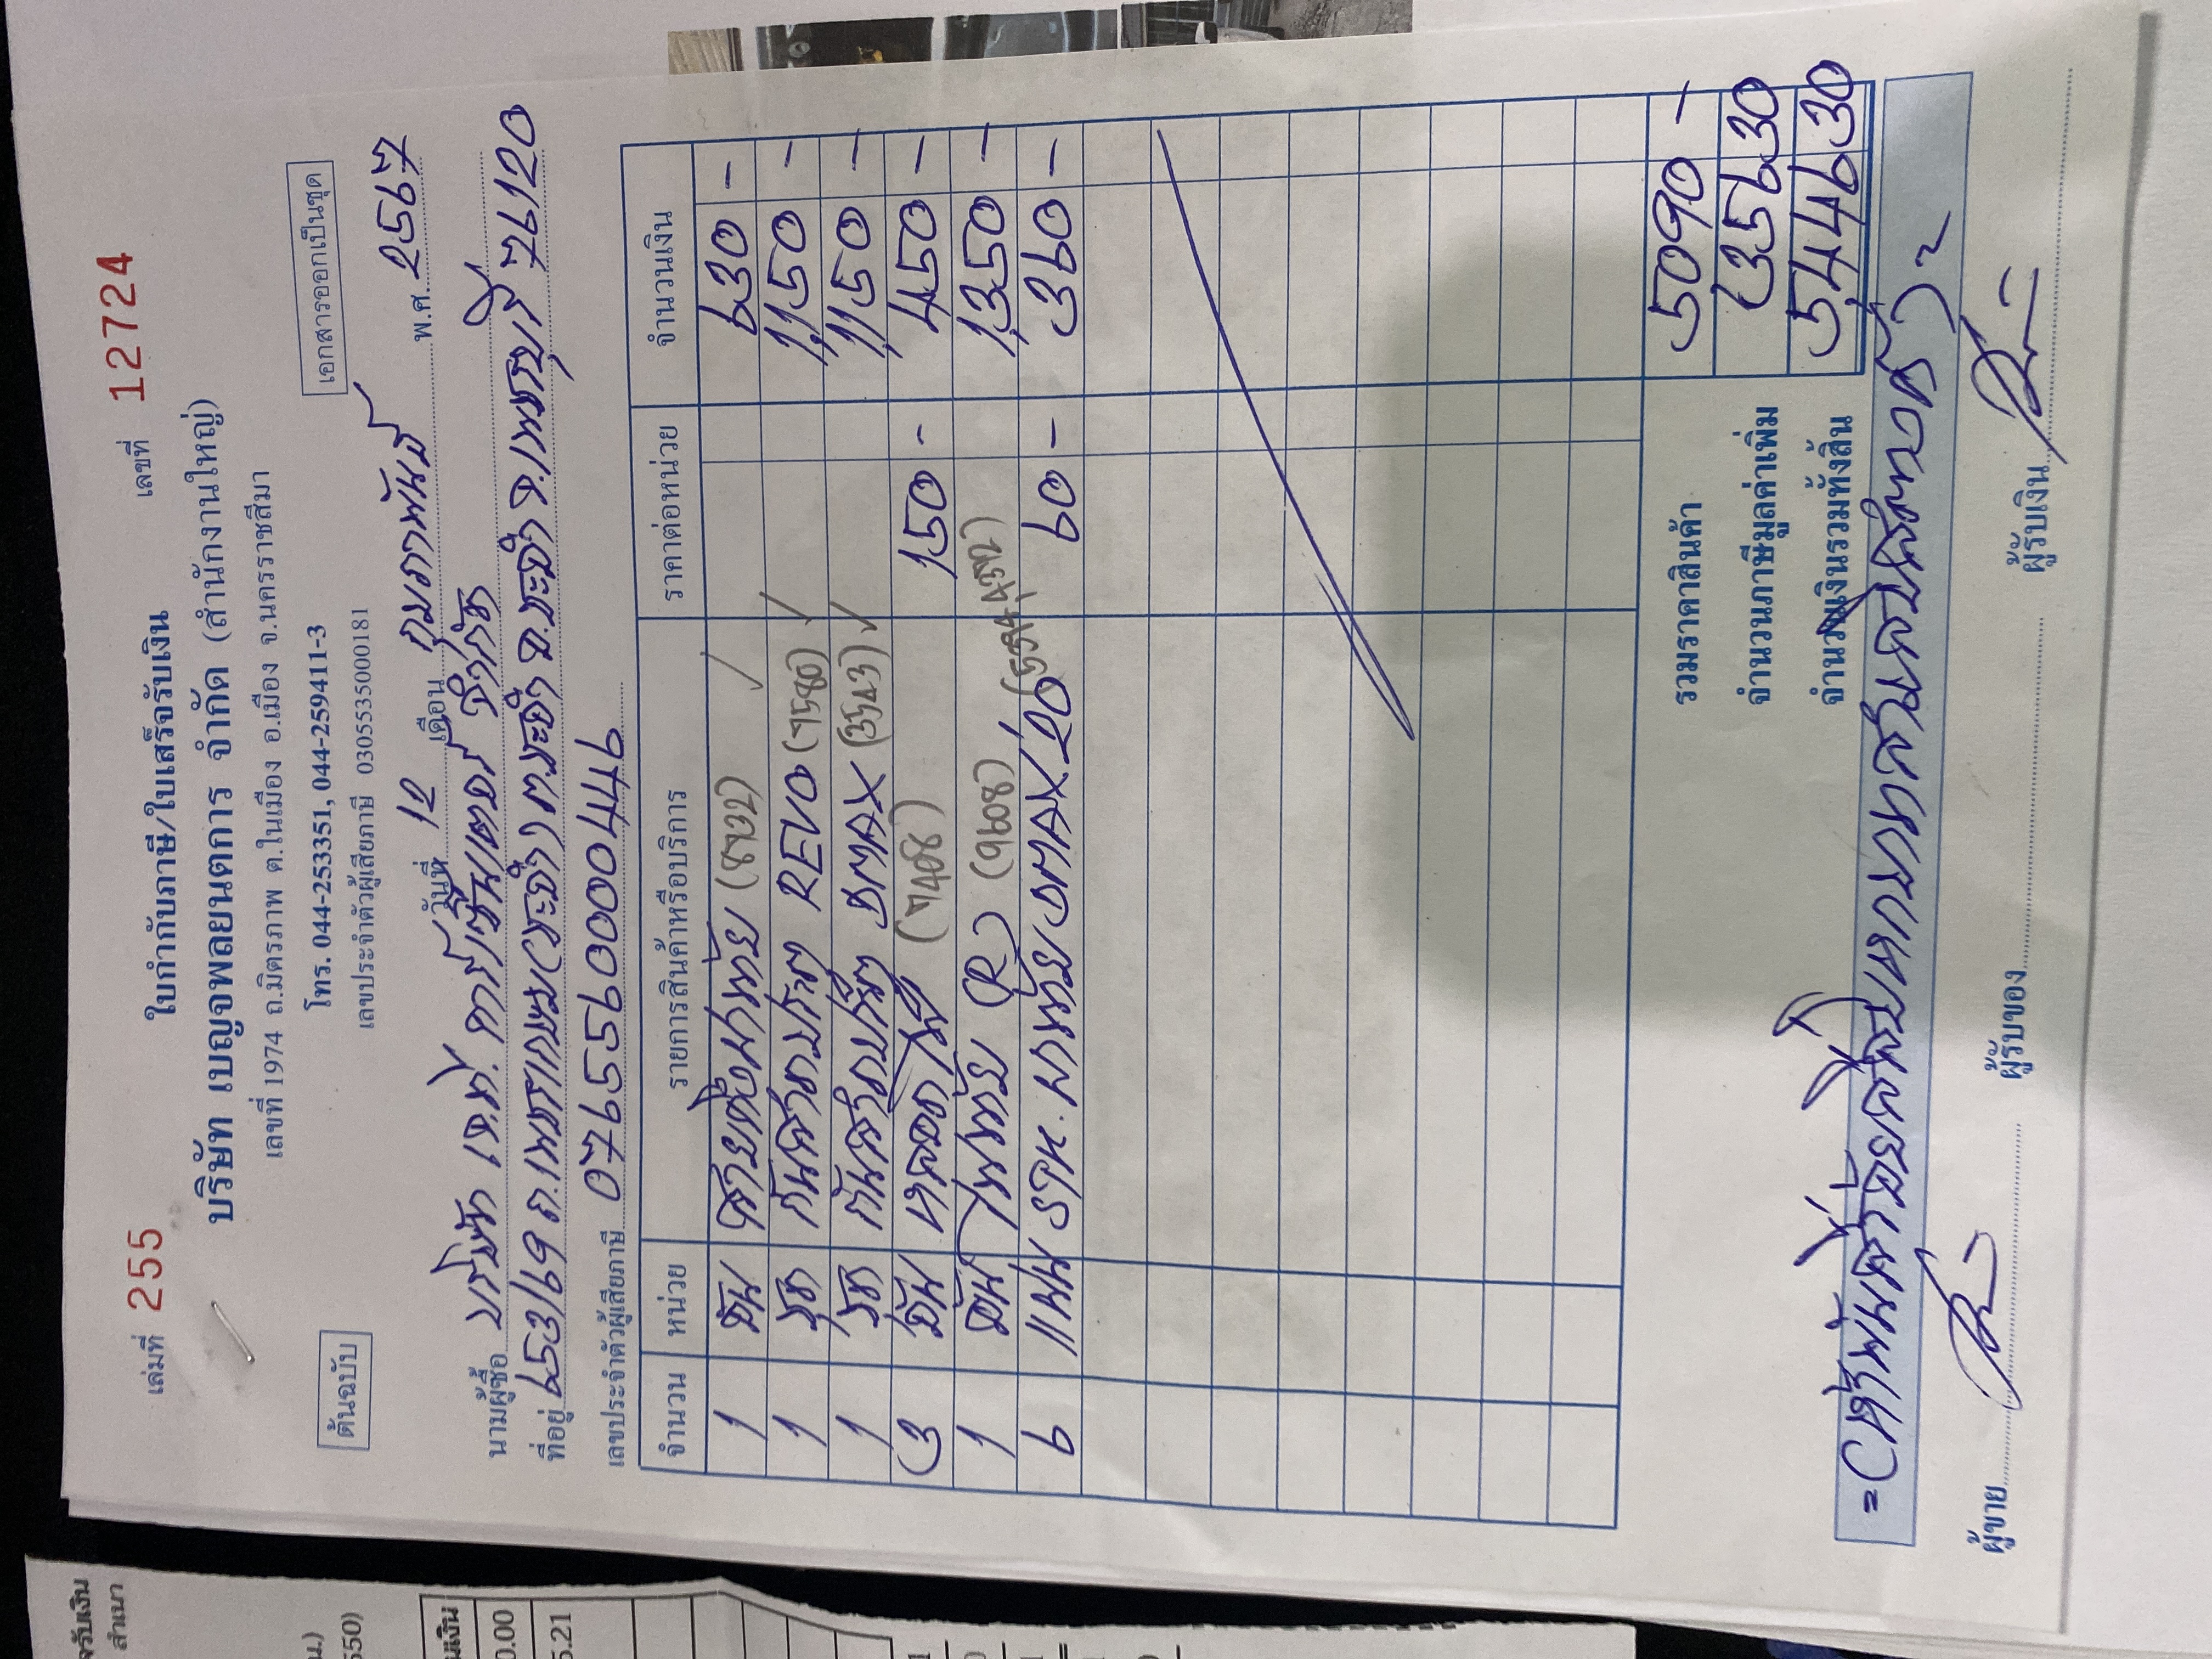 เล่มที่ 255 ใบกำกับภาษี/ใบเสร็จรับเงิน เลขที่ 12724
บริษัท เบญจพลยนตการ จำกัด (สำนักงานใหญ่)
เลขที่ 1974 ถ.มิตรภาพ ต.ในเมือง อ.เมือง จ.นครราชสีมา
โทร. 044-253351, 044-259411-3
ต้นฉบับ เลขประจำตัวผู้เสียภาษี 0305535000181 เอกสารออกเป็นชุด
วันที่ 12 เดือน กุมภาพันธ์ พ.ศ. 2567
นามผู้ซื้อ บริษัท เจ.ดี. คาร์เซ็นเตอร์ จำกัด
ที่อยู่ 653/16 ถ.เพชรเกษม ต.ชะอำ อ.ชะอำ จ.เพชรบุรี 76120
เลขประจำตัวผู้เสียภาษี 0765560004476
จำนวน หน่วย รายการสินค้าหรือบริการ ราคาต่อหน่วย จำนวนเงิน
1 อัน (8732) 630 -
1 ชุด REVO (7580) 1,150 -
1 ชุด DMAX (3543) 1,150 -
3 อัน (7468) 150 - 450 -
1 อัน ไฟท้าย (R) (9608) 1,350 -
6 แผ่น DMAX'20 60 - 360 -
รวมราคาสินค้า 5090 -
จำนวนภาษีมูลค่าเพิ่ม 356 30
จำนวนเงินรวมทั้งสิ้น 5,446 30
=(ห้าพันสี่ร้อยสี่สิบหกบาทสามสิบสตางค์)=
ผู้ขาย ผู้รับของ ผู้รับเงิน
จรับเงิน
สำเนา
น.)
550)
นเงิน
0.00
5.21